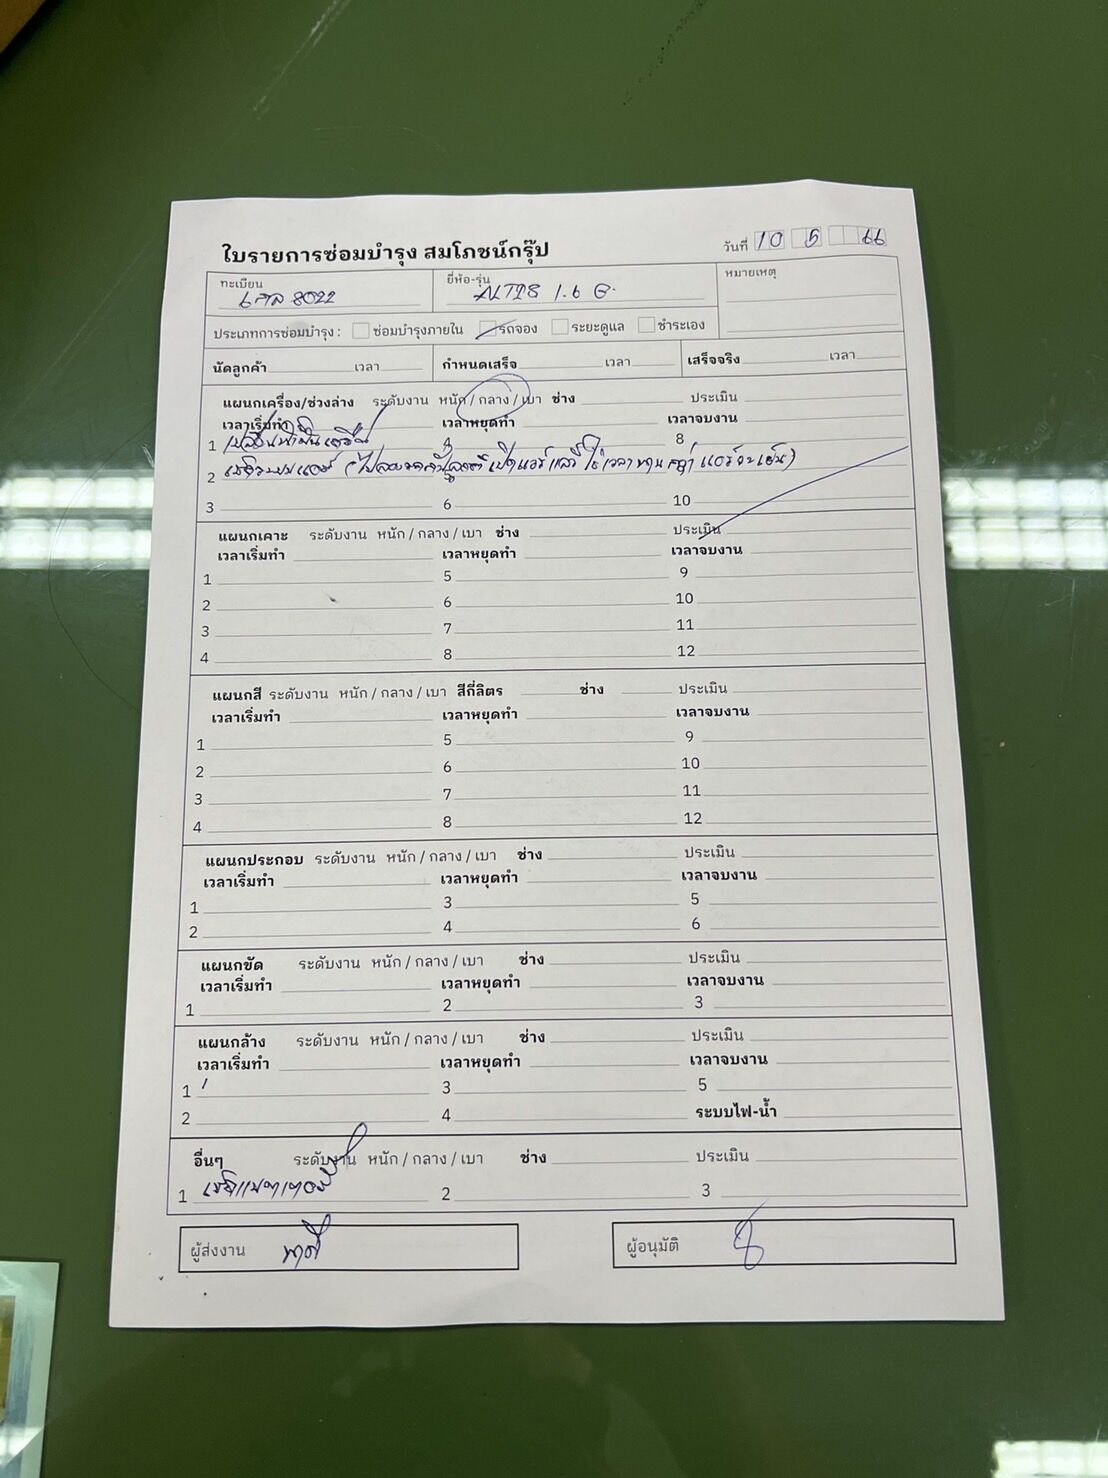 ใบรายการซ่อมบำรุง สมโภชน์กรุ๊ป
วันที่ 10 5 66
ทะเบียน ยี่ห้อ-รุ่น หมายเหตุ
8022 ALTIS 1.6 G
ประเภทการซ่อมบำรุง : ซ่อมบำรุงภายใน รถจอง ระยะดูแล ชำระเอง
นัดลูกค้า เวลา กำหนดเสร็จ เวลา เสร็จจริง เวลา
แผนกเครื่อง/ช่วงล่าง ระดับงาน หนัก / กลาง / เบา ช่าง ประเมิน
เวลาเริ่มทำ เวลาหยุดทำ เวลาจบงาน
1 เปลี่ยนน้ำมันเครื่อง 4 8
2 เช็คระบบแอร์
3 6 10
แผนกเคาะ ระดับงาน หนัก / กลาง / เบา ช่าง ประเมิน
เวลาเริ่มทำ เวลาหยุดทำ เวลาจบงาน
1 5 9
2 6 10
3 7 11
4 8 12
แผนกสี ระดับงาน หนัก / กลาง / เบา สีกี่ลิตร ช่าง ประเมิน
เวลาเริ่มทำ เวลาหยุดทำ เวลาจบงาน
1 5 9
2 6 10
3 7 11
4 8 12
แผนกประกอบ ระดับงาน หนัก / กลาง / เบา ช่าง ประเมิน
เวลาเริ่มทำ เวลาหยุดทำ เวลาจบงาน
1 3 5
2 4 6
แผนกขัด ระดับงาน หนัก / กลาง / เบา ช่าง ประเมิน
เวลาเริ่มทำ เวลาหยุดทำ เวลาจบงาน
1 2 3
แผนกล้าง ระดับงาน หนัก / กลาง / เบา ช่าง ประเมิน
เวลาเริ่มทำ เวลาหยุดทำ เวลาจบงาน
1 3 5
2 4 ระบบไฟ-น้ำ
อื่นๆ ระดับงาน หนัก / กลาง / เบา ช่าง ประเมิน
1 เช็คแบตเตอรี่ 2 3
ผู้ส่งงาน ผู้อนุมัติ